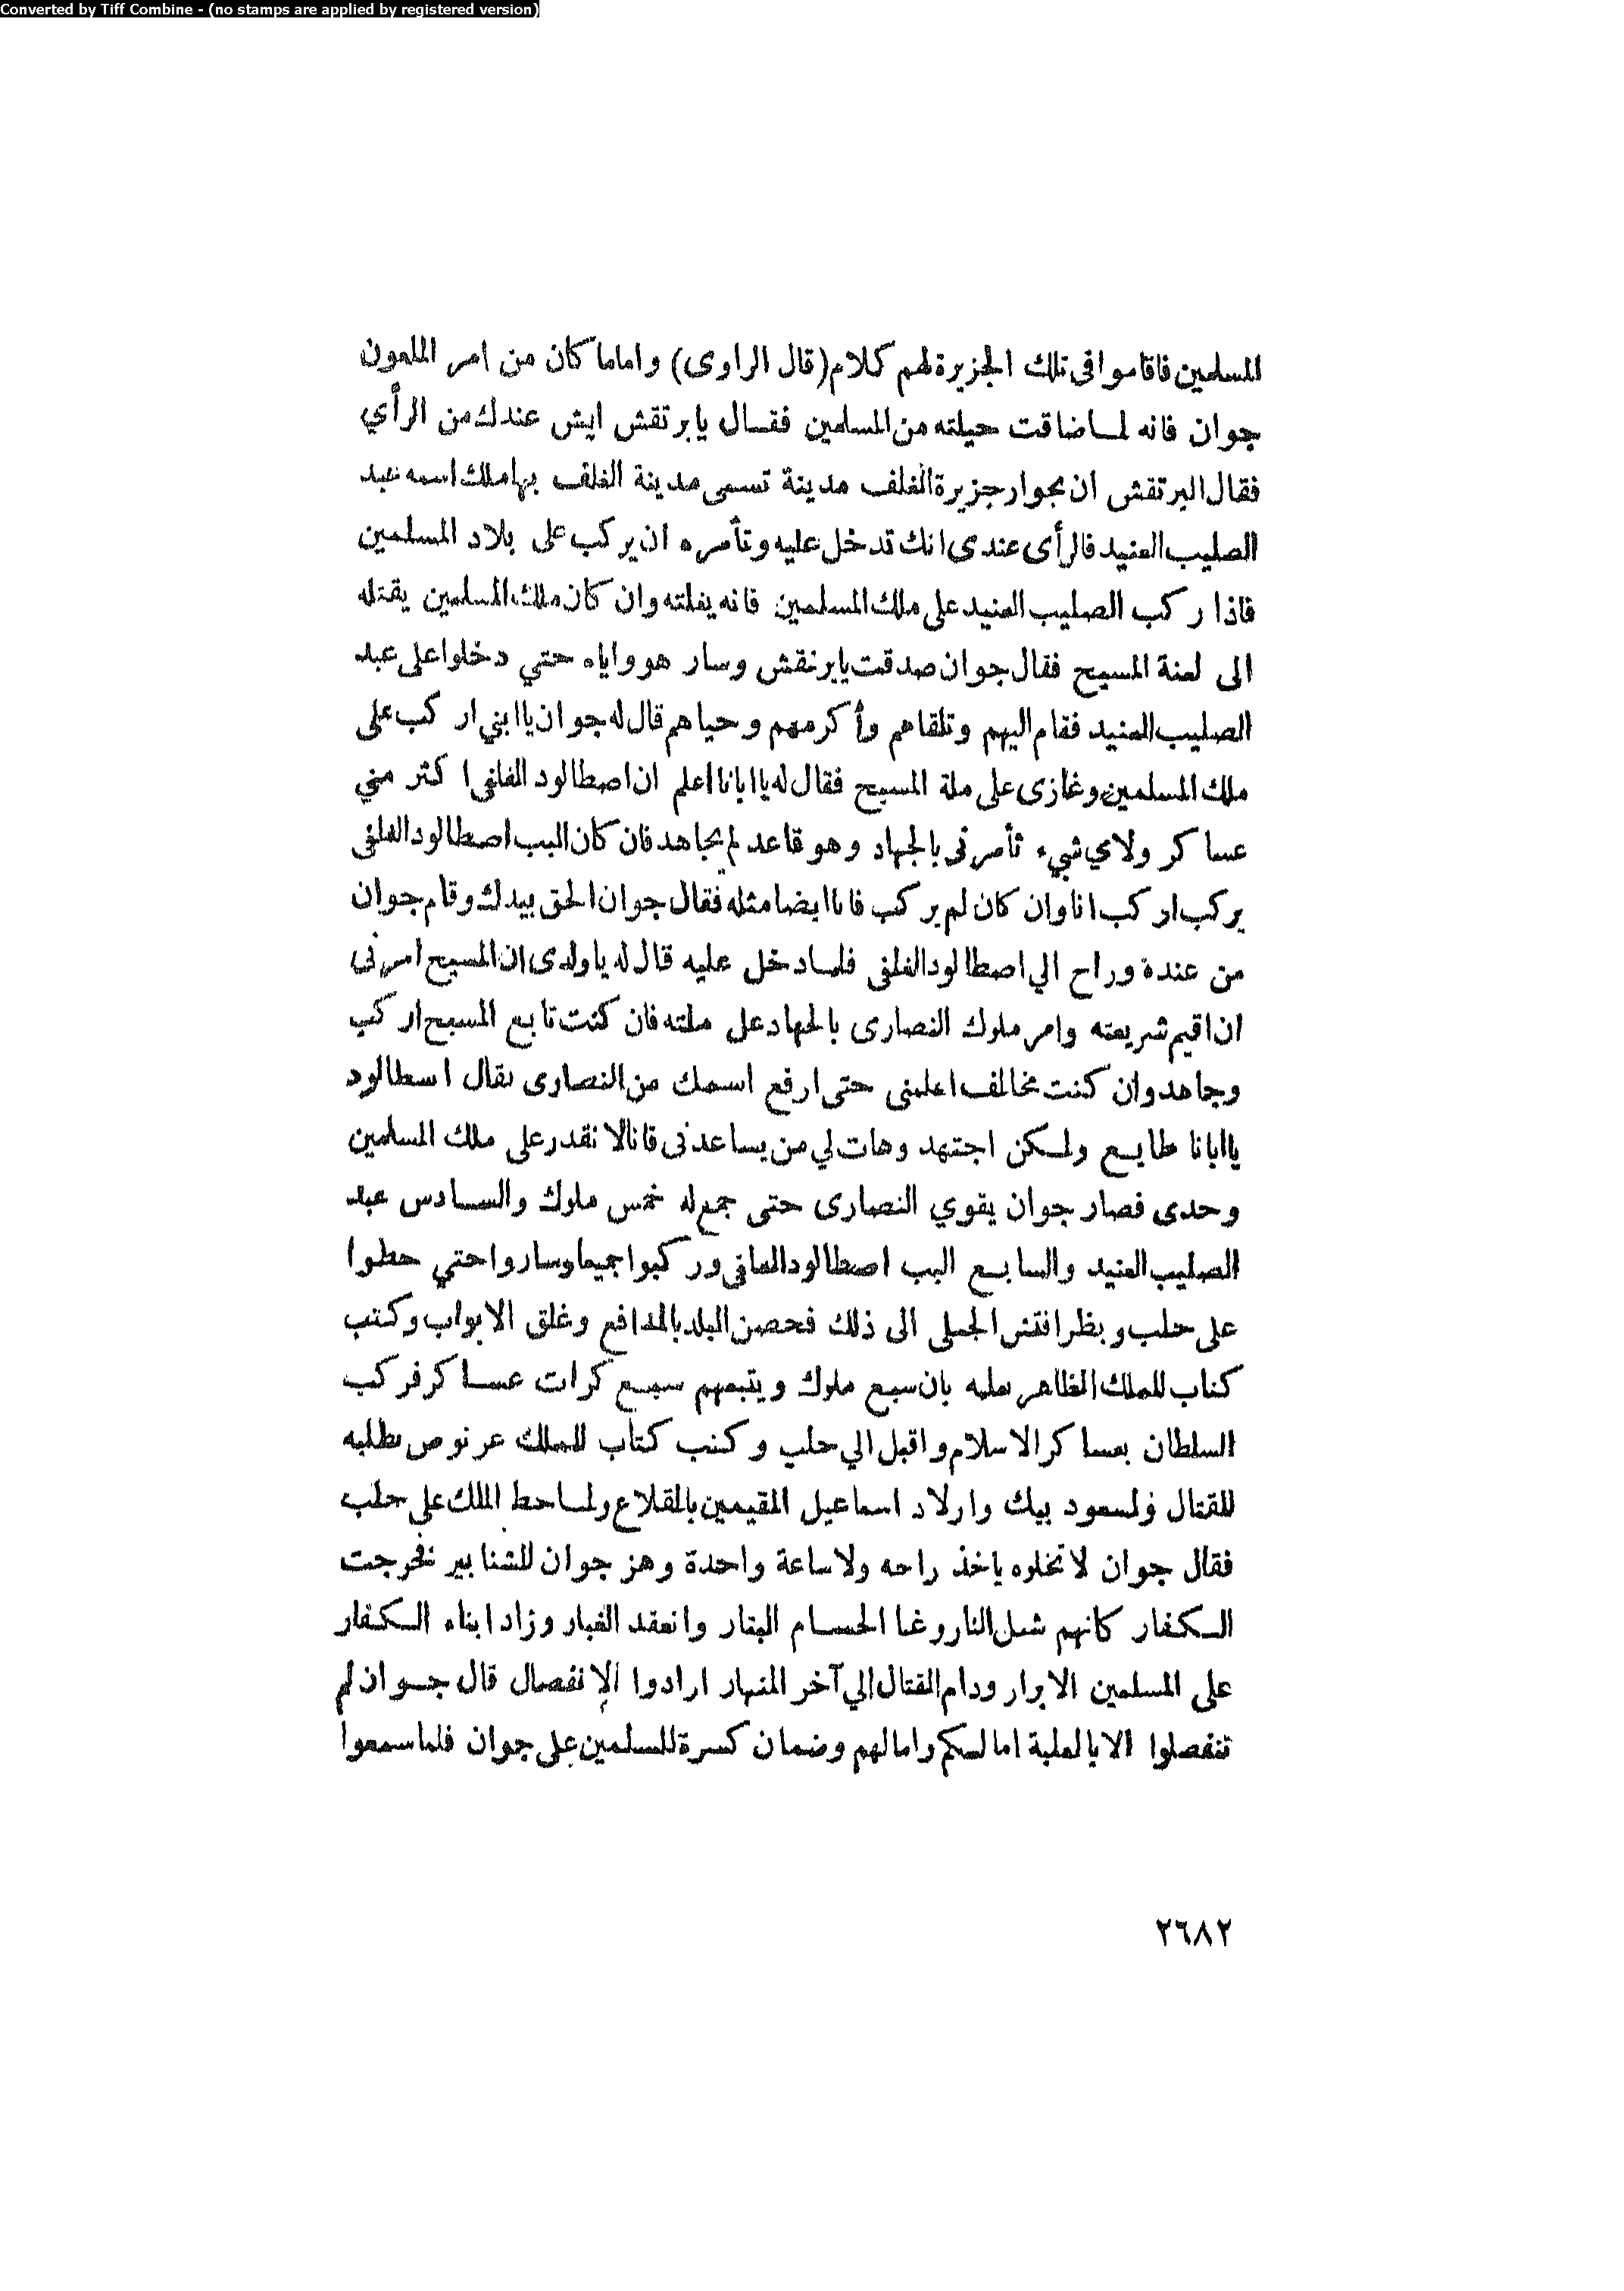 Converted by Tiff Combine - (no stamps are applied by registered version)
المسلمين فاقاموا فى تلك الجزيرة لهم كلام (قال الراوى) واماما كان من امر الملعون
جوان فانه لما ضاقت حيلته من المسلمين فقال يابرتقش ايش عندك من الرأي
فقال البرتقش ان بجوار جزيرة الغلف مدينة تسمى مدينة الغلف بها ملك اسمه عبد
الصليب العنيد فالرأى عندى انك تدخل عليه وتأمره ان يركب على بلاد المسلمين
فاذا ركب الصليب العنيد على ملك المسلمين فانه يفلته وان كان ملك المسلمين يقتله
الى لعنة المسيح فقال جوان صدقت يابرنقش وسار هو واياه حتي دخلوا على عبد
الصليب العنيد فقام اليهم وتلقاهم وأكرمهم وحياهم قال له جوان يا ابني اركب على
ملك المسلمين وغازى على ملة المسيح فقال له يا ابانا اعلم ان اصطالود الغلفى اكثر مني
عساكر ولاي شيء تأمرنى بالجهاد وهو قاعد لم يجاهد فان كان البب اصطالود الغلفى
يركب اركب انا وان كان لم يركب فانا ايضا مثله فقال جوان الحق بيدك وقام جوان
من عندة وراح الي اصطالود الغلفى فلما دخل عليه قال له ياولدى ان المسيح امرنى
ان اقيم شريعته وامر ملوك النصارى بالجهاد على ملته فان كنت تابع المسيح اركب
وجاهد وان كنت مخالف اعلمنى حتى ارفع اسمك من النصارى فقال اسطالود
يا ابانا طايع ولكن اجتهد وهات لي من يساعدنى فانا لا نقدر على ملك المسلمين
وحدى فصار جوان يقوي النصارى حتى جمع له خمس ملوك والسادس عبد
الصليب العنيد والسابع البب اصطالود الغلفى وركبوا جميعا وساروا حتي حطوا
على حلب وبظر افقش الجملى الى ذلك فحصن البلد بالمدافع وغلق الابواب وكتب
كتاب للملك الظاهر يعلمه بان سبع ملوك ويتبعهم سبع كرات عساكر فركب
السلطان بعساكر الاسلام واقبل الي حلب وكتب كتاب للملك عرنوص يطلبه
للقتال ولسعود بيك واولاد اسماعيل المقيمين بالقلاع ولما حط الملك على حلب
فقال جوان لا تخلوه ياخذ راحه ولا ساعة واحدة وهز جوان للشنابير فخرجت
الكفار كانهم شعل النار وغنا الحسام البتار وانعقد الغبار وزاد ابناء الكفار
على المسلمين الابرار ودام القتال الي آخر النهار ارادوا الإنفصال قال جوان لم
تنفصلوا الا بالغلبة اما لكم واما لهم وضمان كسرة للسلمين على جوان فلما سمعوا
٢٦٨٢